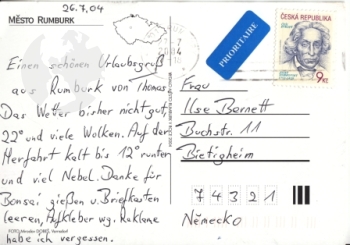 26.7.04
MĚSTO RUMBURK
Einen schönen Urlaubsgruß
aus Rumburk von Thomas.
Das Wetter bisher nicht gut,
22° und viele Wolken. Auf der
Herfahrt kalt bis 12° runter
und viel Nebel. Danke für
Bonsai gießen u. Briefkasten
leeren, Aufkleber wg. Reklame
habe ich vergessen.
PRIORITAIRE
ČESKÁ REPUBLIKA
9 Kč
Frau
Ilse Bernett
Buchstr. 11
Bietigheim
74321
Německo